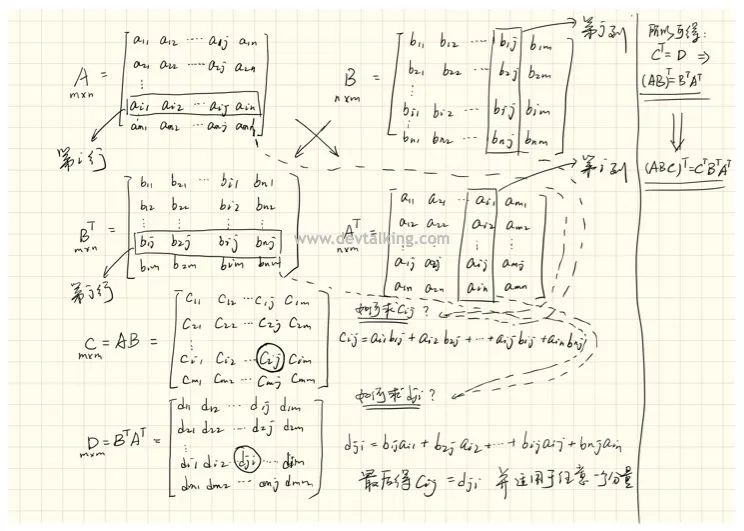 A
m×n
=
a11 a12 ··· a1j a1n
a21 a22 ··· a2j a2n
⋮
ai1 ai2 ··· aij ain
am1 am2 ··· amj amn
第i行
B
n×m
=
b11 b12 ··· b1j b1m
b21 b22 ··· b2j b2m
⋮ ⋮ ⋮ ⋮
bi1 bi2 ··· bij bim
bn1 bn2 ··· bnj bnm
第j列
所以可得:
C^T = D ⇒
(AB)^T = B^T A^T
⇓
(ABC)^T = C^T B^T A^T
B^T
m×n
=
b11 b21 ··· bi1 bn1
b12 b22 bi2 bn2
⋮ ⋮ ⋮ ⋮
b1j b2j bij bnj
b1m b2m bim bnm
第j行
A^T
n×m
=
a11 a21 ··· ai1 am1
a12 a22 ai2 am2
⋮ ⋮ ⋮ ⋮
a1j a2j aij amj
a1n a2n ain amn
第i列
www.devtalking.com
C = AB =
m×m
c11 c12 ··· c1j c1m
c21 c22 ··· c2j c2m
⋮
ci1 ci2 ··· cij cim
cm1 cm2 ··· cmj cmm
如何求cij?
cij = ai1b1j + ai2b2j + ··· + aijbij + ainbnj
D = B^T A^T =
m×m
d11 d12 ··· d1j d1m
d21 d22 ··· d2j d2m
⋮
di1 di2 dji ··· dim
dm1 dm2 ··· dmj dmm
如何求dji?
dji = b1jai1 + b2jai2 + ··· + bijaij + bnjain
最后得cij = dji 并适用于任意一个分量